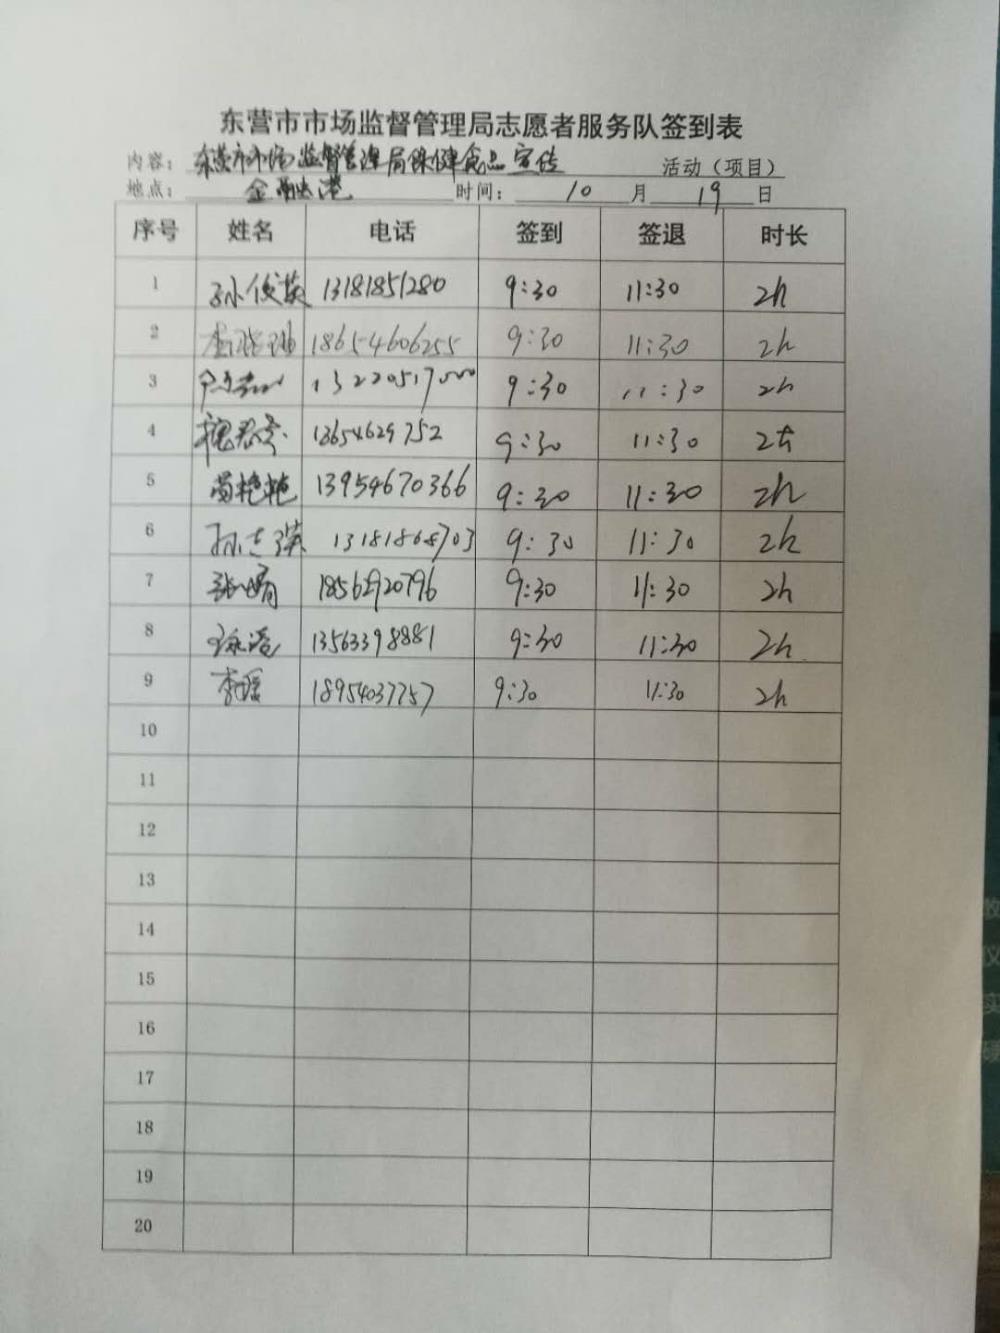 东营市市场监督管理局志愿者服务队签到表
内容：东营市市场监督管理局保健食品宣传 活动（项目）
地点：金融港 时间：10月19日
序号 姓名 电话 签到 签退 时长
1 孙俊英 13181851280 9:30 11:30 2h
2 18654606255 9:30 11:30 2h
3 9:30 11:30 2h
4 13654629752 9:30 11:30 2h
5 苟艳艳 13954670366 9:30 11:30 2h
6 孙志强 13181868703 9:30 11:30 2h
7 张婧 18562920796 9:30 11:30 2h
8 13563398881 9:30 11:30 2h
9 李瑶 18954037757 9:30 11:30 2h
10
11
12
13
14
15
16
17
18
19
20